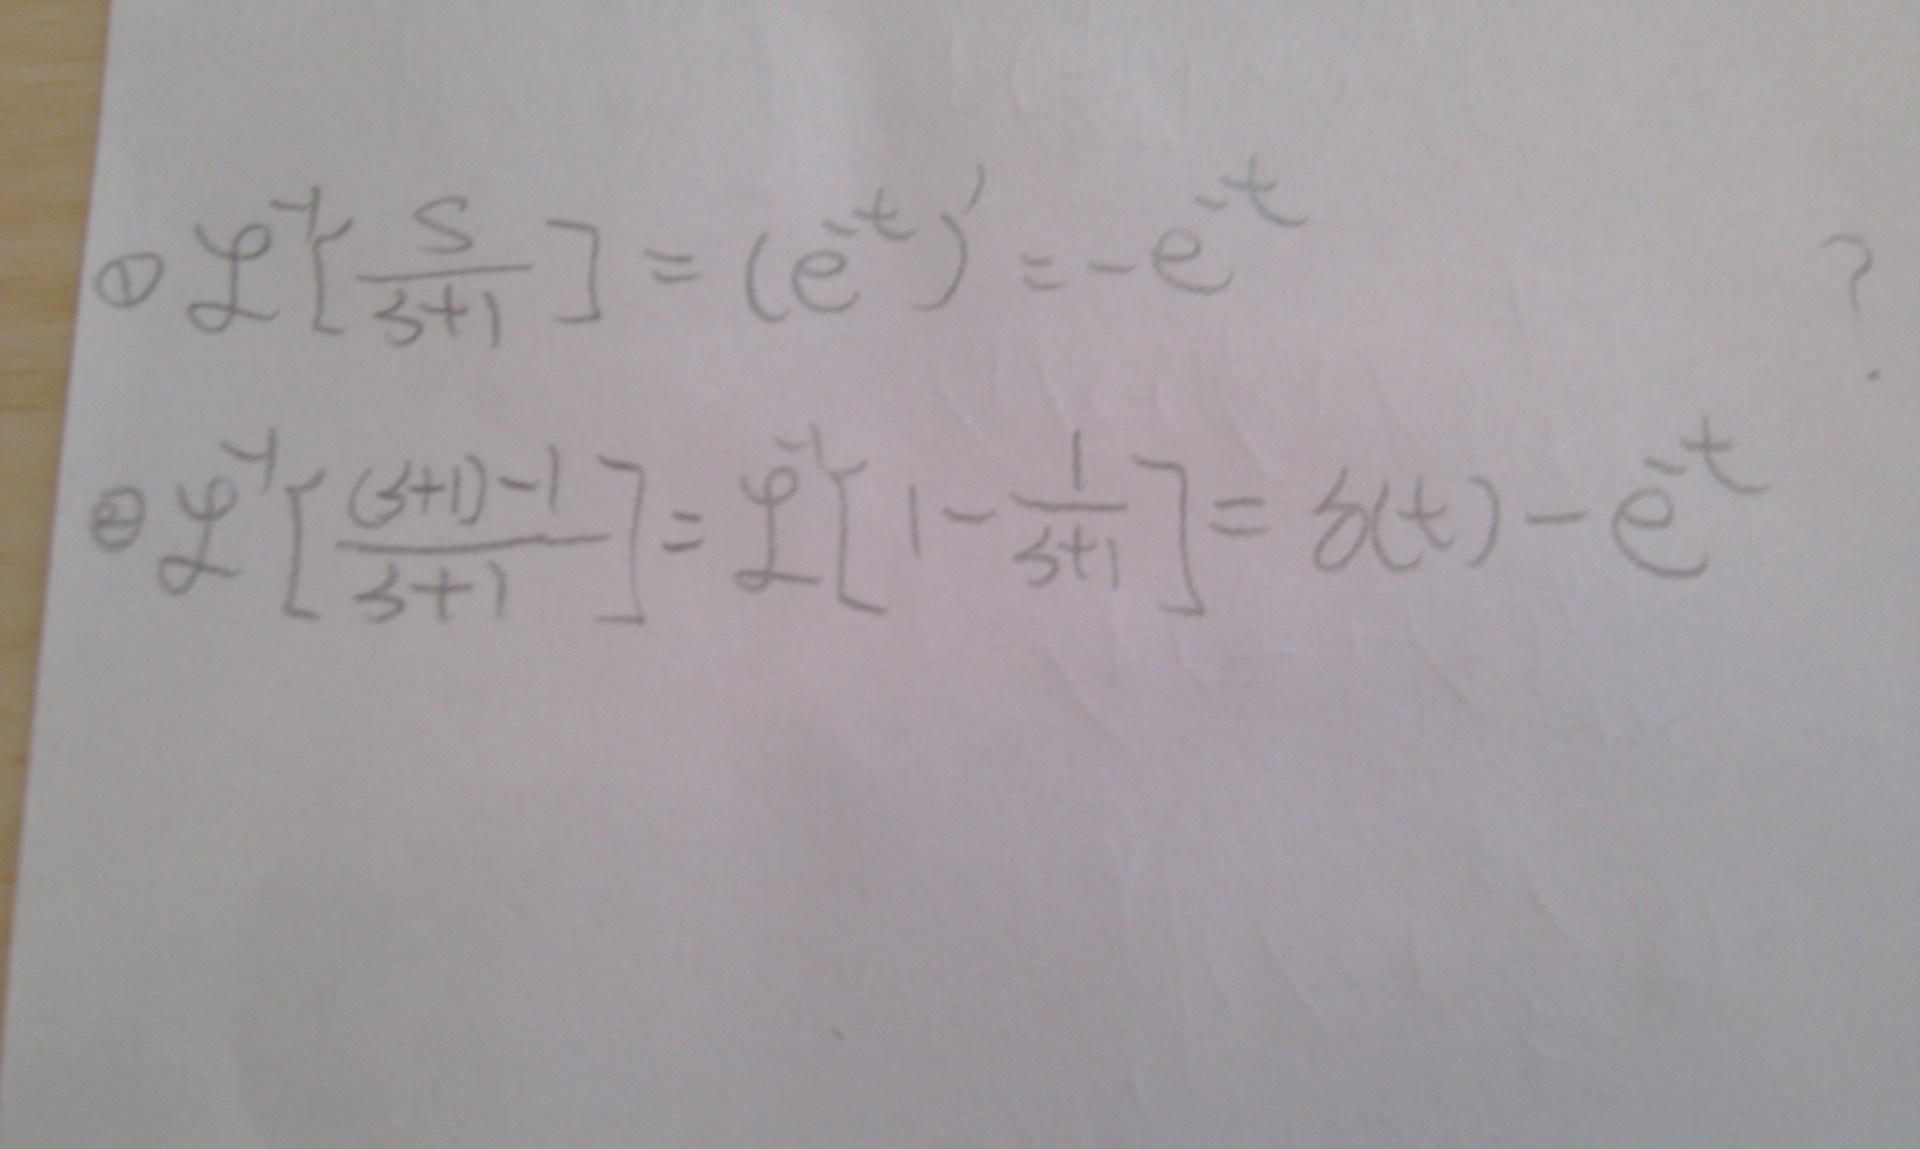 ① ℒ⁻¹[s/(s+1)] = (e^{-t})' = -e^{-t} ?
② ℒ⁻¹[((s+1)-1)/(s+1)] = ℒ⁻¹[1 - 1/(s+1)] = δ(t) - e^{-t}